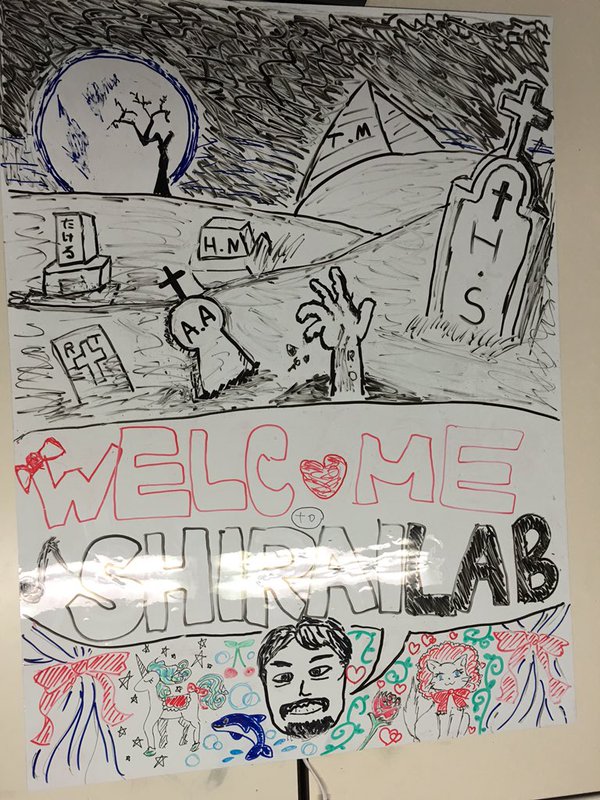 T.M
たける
H.N
H.S
A.A
R
R.O
WELCOME
to
SHIRAI LAB